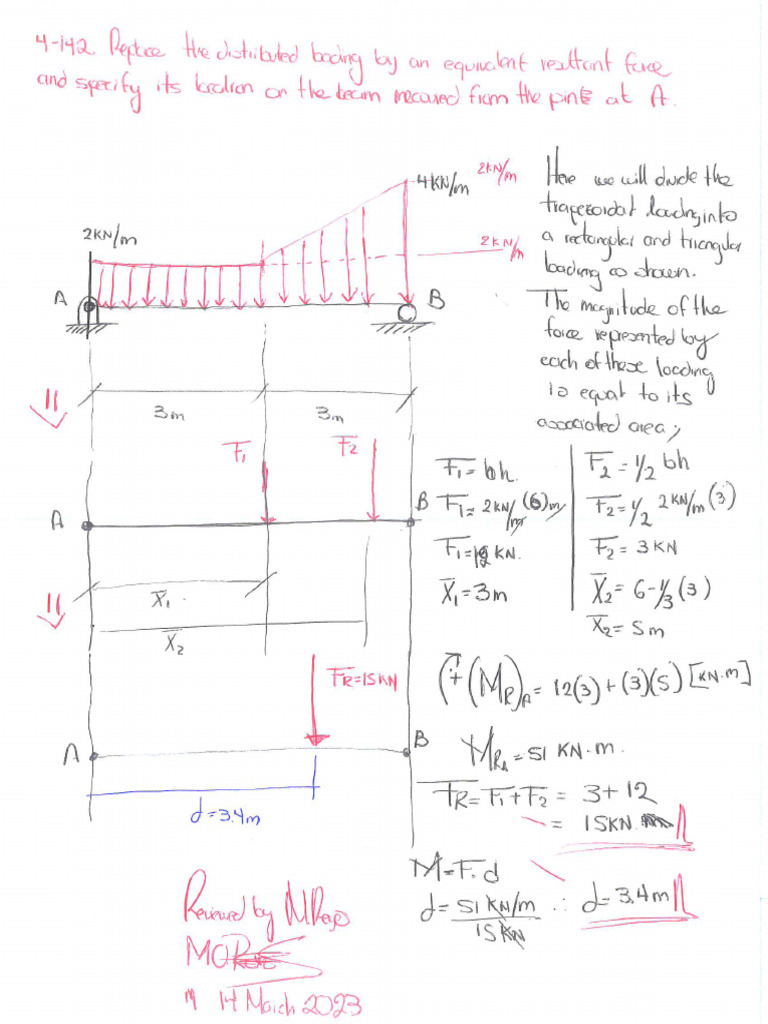 4-142 Replace the distributed loading by an equivalent resultant force
and specify its location on the beam measured from the pin at A.
4KN/m 2KN/m
2KN/m
2KN/m
A
B
Here we will divide the
trapezoidal loading into
a rectangular and triangular
loading as shown.
The magnitude of the
force represented by
each of these loading
is equal to its
associated area;
3m
3m
F1
F2
A
B
F1=bh.
F1=2KN/m(6)m
F1=12KN.
X1=3m
F2=1/2 bh
F2=1/2 2KN/m(3)
F2=3KN
X2=6-1/3(3)
X2=5m
X1
X2
FR=15KN
+(MR)A=12(3)+(3)(5)[KN.m]
MRA=51 KN.m.
FR=F1+F2=3+12
=15KN
A
B
d=3.4m
M=F.d
d=51KN/m
15KN
∴ d=3.4m
Reviewed by
14 March 2023